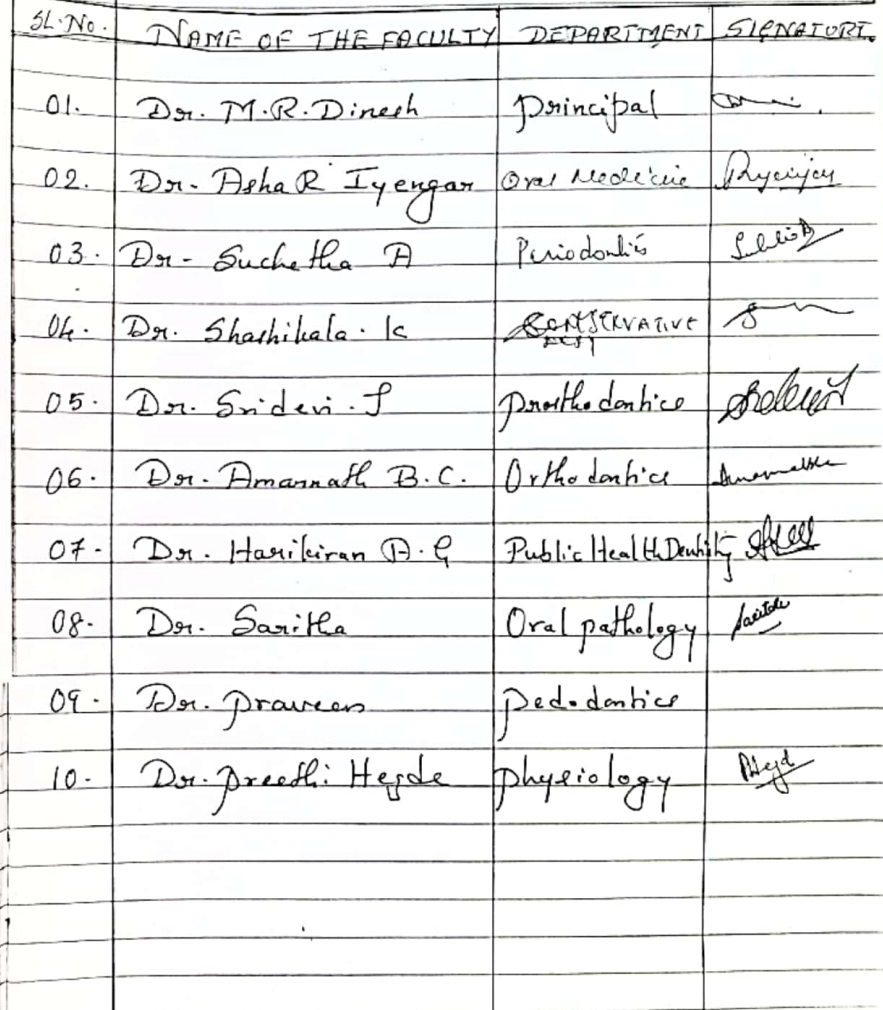 SL.No. NAME OF THE FACULTY DEPARTMENT SIGNATURE
01. Dr. M.R.Dinesh principal
02. Dr. Asha R Iyengar Oral Medicine
03. Dr. Suchetha A Periodontics
04. Dr. Shashikala. K CONSERVATIVE
05. Dr. Sridevi. J prosthodontics
06. Dr. Amarnath B.C. Orthodontics
07. Dr. Harikiran A.G Public Health Dentistry
08. Dr. Saritha Oral pathology
09. Dr. praveen pedodontics
10. Dr. preethi Hegde physiology